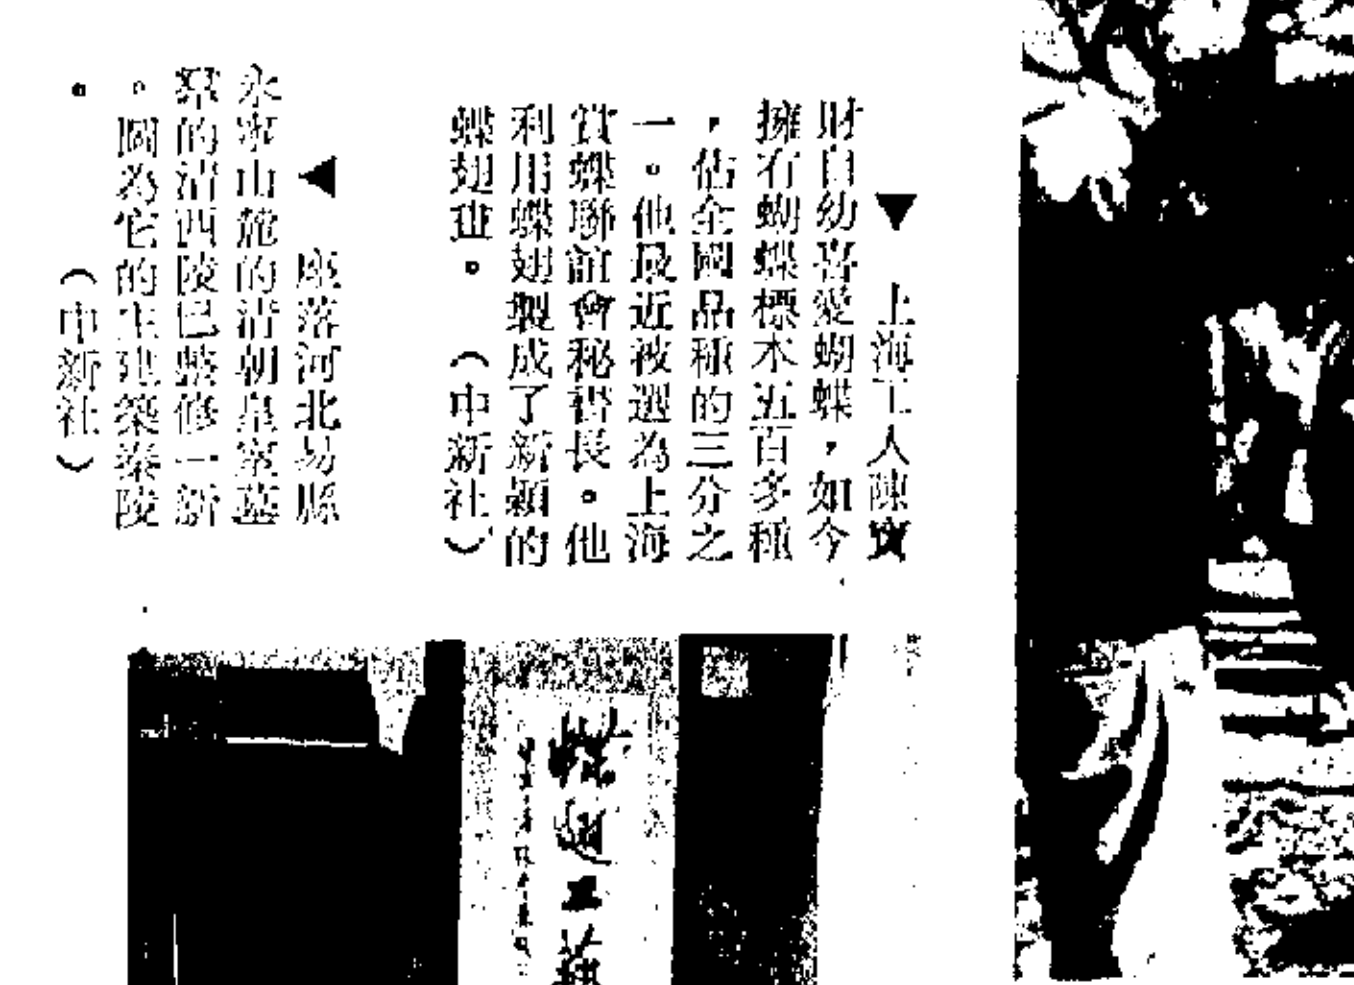 ▼ 上海工人陳寶
財自幼喜愛蝴蝶，如今
擁有蝴蝶標本五百多種
，佔全國品種的三分之
一。他最近被選為上海
賞蝶聯誼會秘書長。他
利用蝶翅製成了新穎的
蝶翅畫。（中新社）
◀ 座落河北易縣
永寧山麓的清朝皇室墓
羣的清西陵已整修一新
。圖為它的主建築泰陵
。（中新社）
蝶翅工藝